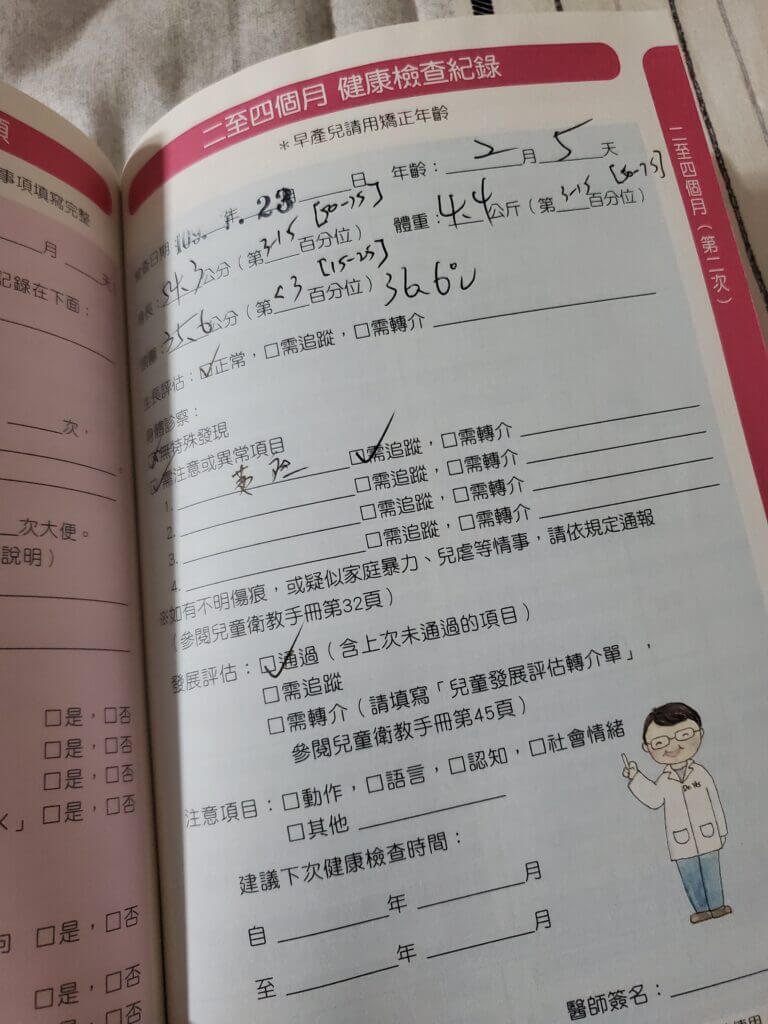 二至四個月 健康檢查紀錄
＊早產兒請用矯正年齡
檢查日期：109. 23 日 年齡：2月5天
身長：54.3公分（第3-15百分位）[50-75] 體重：4.4公斤（第3-15百分位）[50-75]
頭圍：35.6公分（第<3百分位）[15-25] 36.6°
生長評估：☑正常，□需追蹤，□需轉介
身體診察：
無特殊發現
☑需注意或異常項目
1. 黃疸 ☑需追蹤，□需轉介
2. □需追蹤，□需轉介
3. □需追蹤，□需轉介
4. □需追蹤，□需轉介
※如有不明傷痕，或疑似家庭暴力、兒虐等情事，請依規定通報
（參閱兒童衛教手冊第32頁）
發展評估：☑通過（含上次未通過的項目）
□需追蹤
□需轉介（請填寫「兒童發展評估轉介單」，
參閱兒童衛教手冊第45頁）
注意項目：□動作，□語言，□認知，□社會情緒
□其他
建議下次健康檢查時間：
自 年 月
至 年 月
醫師簽名：
二至四個月（第二次）
事項填寫完整
月 天
記錄在下面：
次，
次大便。
說明）
□是，□否
□是，□否
□是，□否
」□是，□否
□是，□否
□是，□否